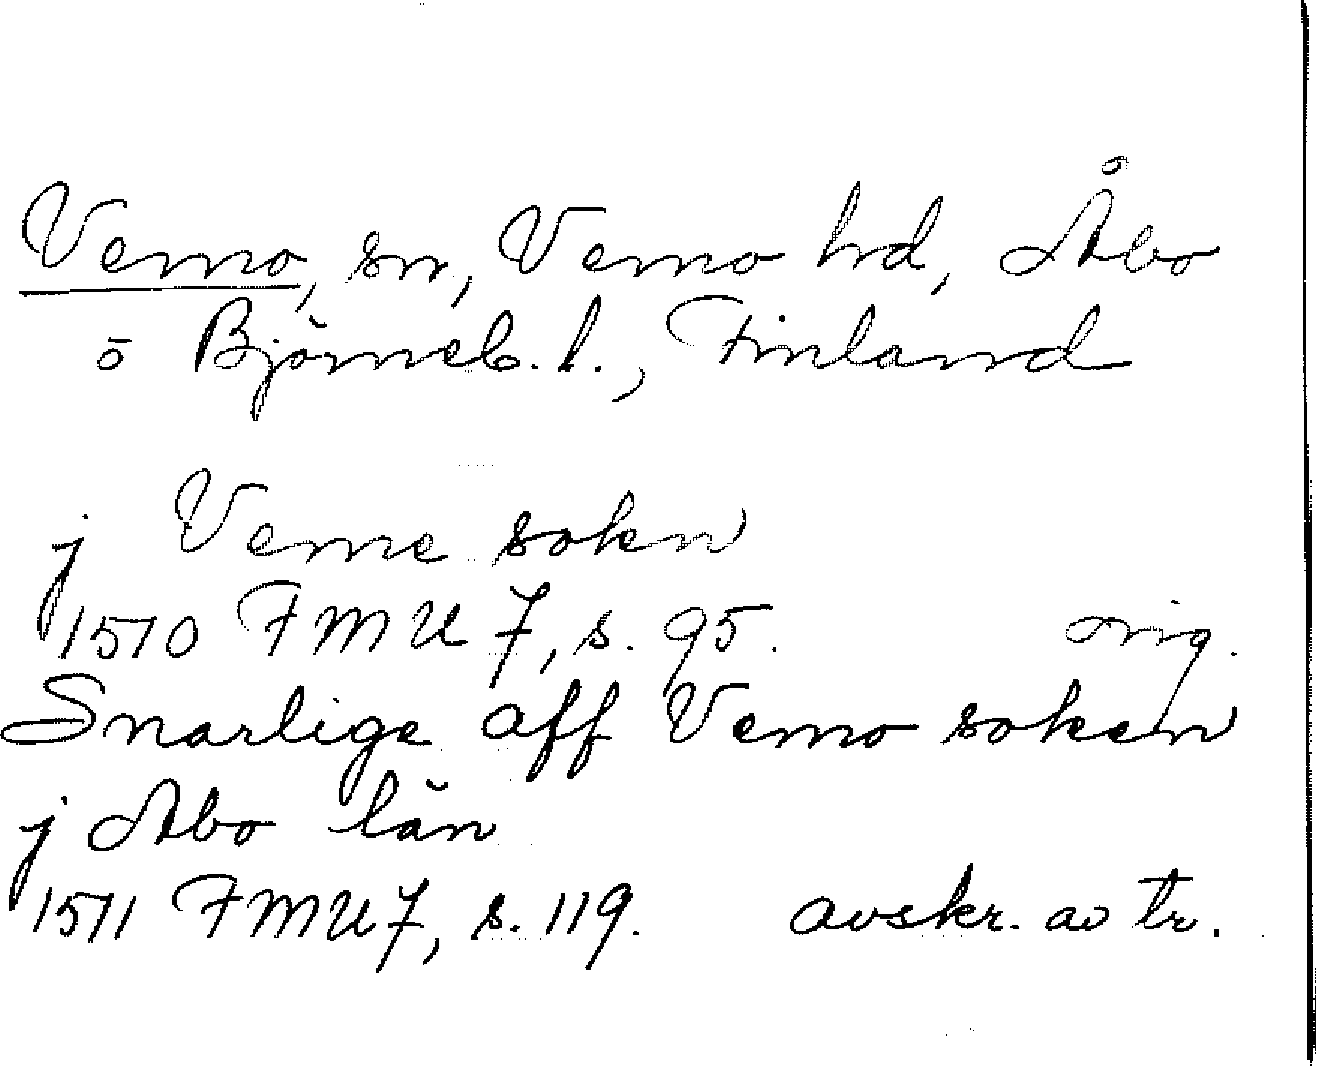 Vemo, sn, Vemo hd, Åbo
o Björneb. l., Finland
j Veme sokn
1510 FMU 7, s. 95. orig.
Snarlige aff Vemo soken
j Abo län
1511 FMU 7, s. 119. avskr. av tr.